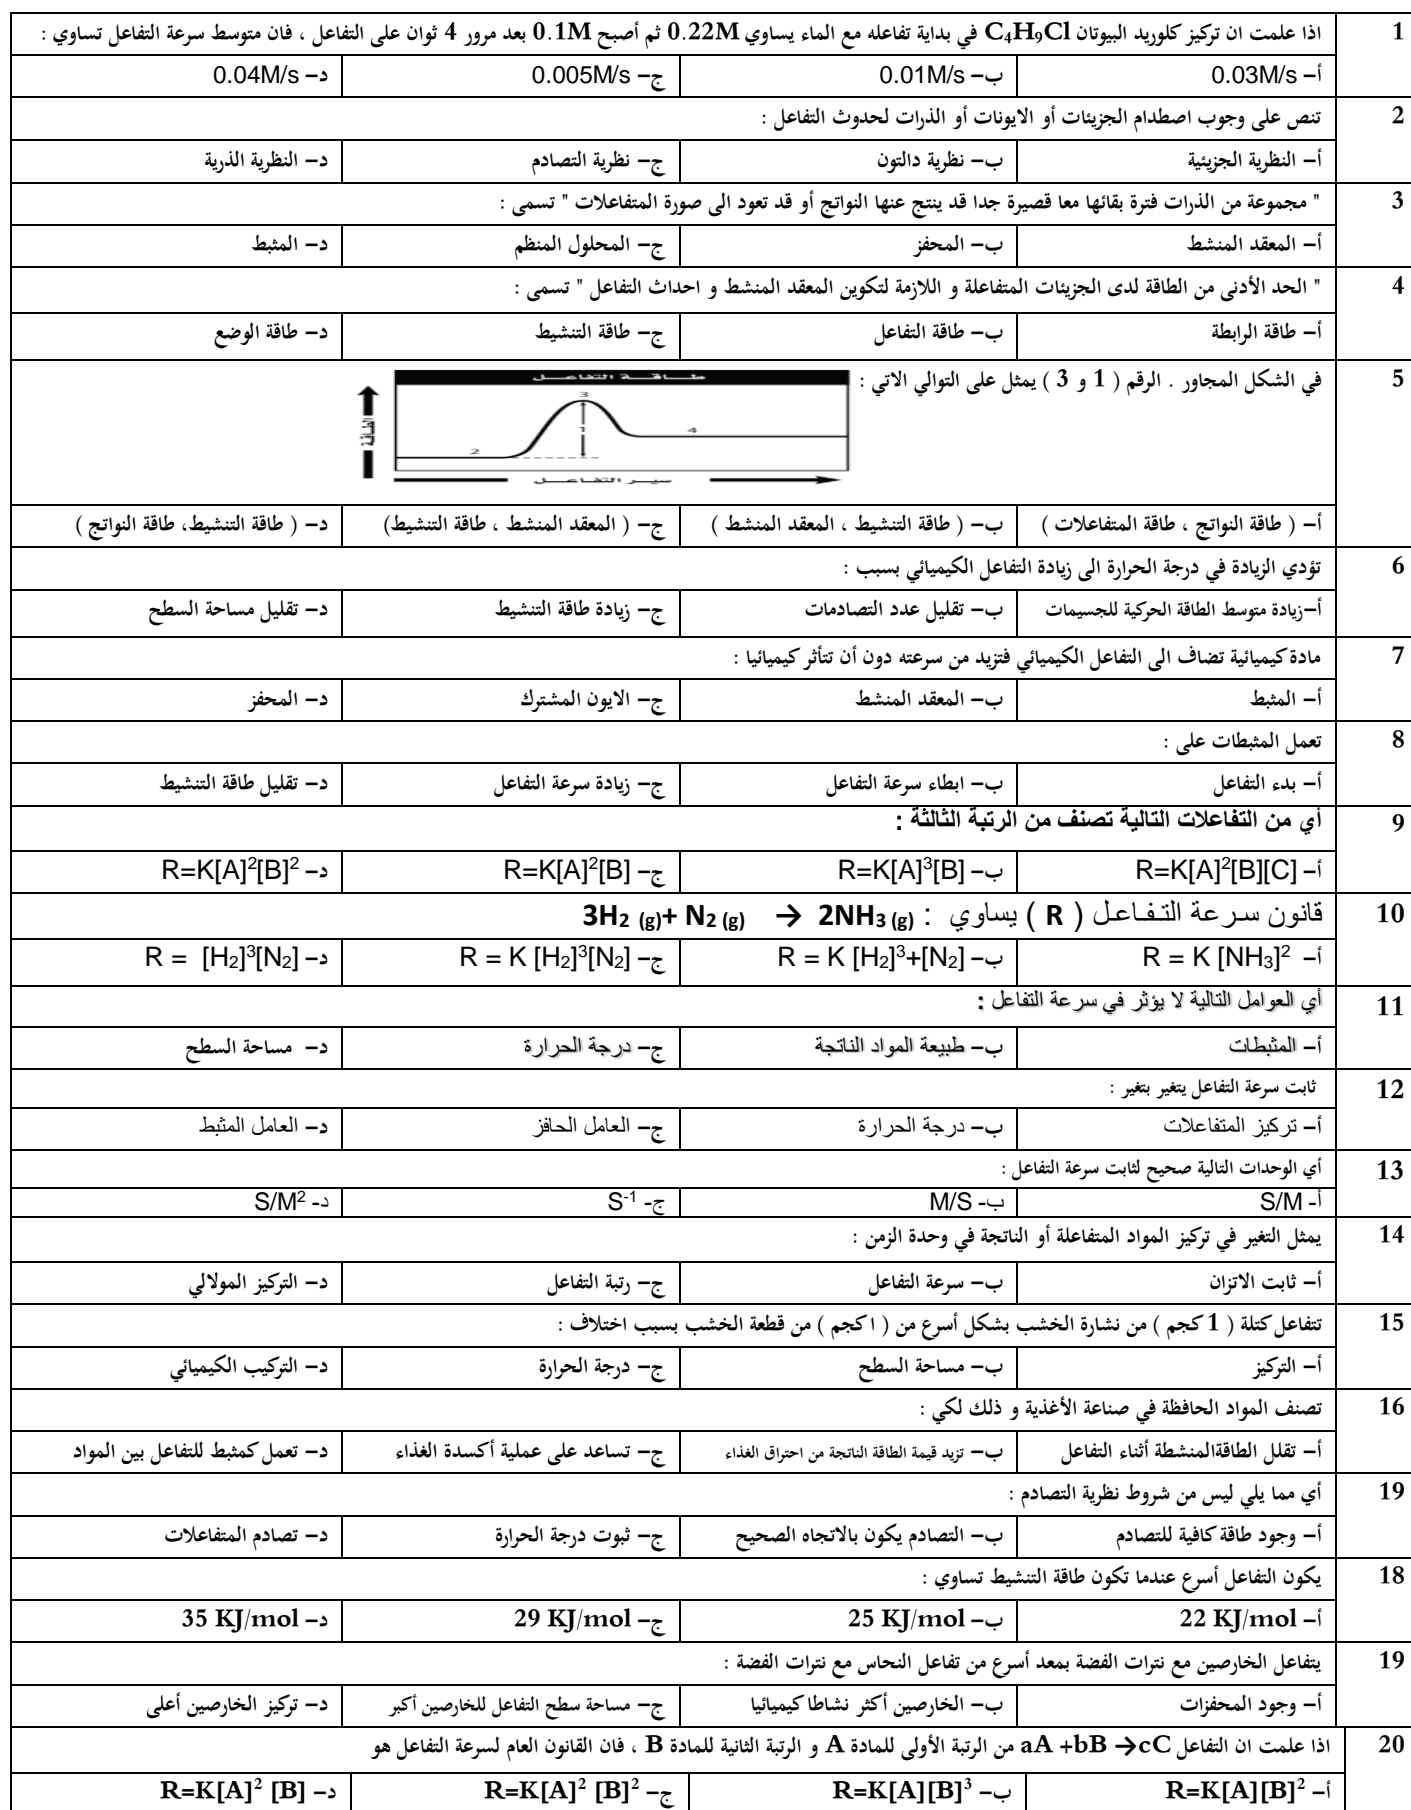 1 اذا علمت ان تركيز كلوريد البيوتان C₄H₉Cl في بداية تفاعله مع الماء يساوي 0.22M ثم أصبح 0.1M بعد مرور 4 ثوان على التفاعل ، فان متوسط سرعة التفاعل تساوي :
أ– 0.03M/s ب– 0.01M/s ج– 0.005M/s د– 0.04M/s
2 تنص على وجوب اصطدام الجزيئات أو الايونات أو الذرات لحدوث التفاعل :
أ– النظرية الجزيئية ب– نظرية دالتون ج– نظرية التصادم د– النظرية الذرية
3 " مجموعة من الذرات فترة بقائها معا قصيرة جدا قد ينتج عنها النواتج أو قد تعود الى صورة المتفاعلات " تسمى :
أ– المعقد المنشط ب– المحفز ج– المحلول المنظم د– المثبط
4 " الحد الأدنى من الطاقة لدى الجزيئات المتفاعلة و اللازمة لتكوين المعقد المنشط و احداث التفاعل " تسمى :
أ– طاقة الرابطة ب– طاقة التفاعل ج– طاقة التنشيط د– طاقة الوضع
5 في الشكل المجاور . الرقم ( 1 و 3 ) يمثل على التوالي الاتي :
طاقة التفاعل
3
الطاقة
1
4
2
سير التفاعل
أ– ( طاقة النواتج ، طاقة المتفاعلات ) ب– ( طاقة التنشيط ، المعقد المنشط ) ج– ( المعقد المنشط ، طاقة التنشيط) د– ( طاقة التنشيط، طاقة النواتج )
6 تؤدي الزيادة في درجة الحرارة الى زيادة التفاعل الكيميائي بسبب :
أ–زيادة متوسط الطاقة الحركية للجسيمات ب– تقليل عدد التصادمات ج– زيادة طاقة التنشيط د– تقليل مساحة السطح
7 مادة كيميائية تضاف الى التفاعل الكيميائي فتزيد من سرعته دون أن تتأثر كيميائيا :
أ– المثبط ب– المعقد المنشط ج– الايون المشترك د– المحفز
8 تعمل المثبطات على :
أ– بدء التفاعل ب– ابطاء سرعة التفاعل ج– زيادة سرعة التفاعل د– تقليل طاقة التنشيط
9 أي من التفاعلات التالية تصنف من الرتبة الثالثة :
أ– R=K[A]²[B][C] ب– R=K[A]³[B] ج– R=K[A]²[B] د– R=K[A]²[B]²
10 قانون سرعة التفاعل ( R ) يساوي : 3H₂ (g)+ N₂ (g) → 2NH₃ (g)
أ– R = K [NH₃]² ب– R = K [H₂]³+[N₂] ج– R = K [H₂]³[N₂] د– R = [H₂]³[N₂]
11 أي العوامل التالية لا يؤثر في سرعة التفاعل :
أ– المثبطات ب– طبيعة المواد الناتجة ج– درجة الحرارة د– مساحة السطح
12 ثابت سرعة التفاعل يتغير بتغير :
أ– تركيز المتفاعلات ب– درجة الحرارة ج– العامل الحافز د– العامل المثبط
13 أي الوحدات التالية صحيح لثابت سرعة التفاعل :
أ- S/M ب- M/S ج- S⁻¹ د- S/M²
14 يمثل التغير في تركيز المواد المتفاعلة أو الناتجة في وحدة الزمن :
أ– ثابت الاتزان ب– سرعة التفاعل ج– رتبة التفاعل د– التركيز المولالي
15 تتفاعل كتلة ( 1 كجم ) من نشارة الخشب بشكل أسرع من ( ١ كجم ) من قطعة الخشب بسبب اختلاف :
أ– التركيز ب– مساحة السطح ج– درجة الحرارة د– التركيب الكيميائي
16 تصنف المواد الحافظة في صناعة الأغذية و ذلك لكي :
أ– تقلل الطاقةالمنشطة أثناء التفاعل ب– تزيد قيمة الطاقة الناتجة من احتراق الغذاء ج– تساعد على عملية أكسدة الغذاء د– تعمل كمثبط للتفاعل بين المواد
19 أي مما يلي ليس من شروط نظرية التصادم :
أ– وجود طاقة كافية للتصادم ب– التصادم يكون بالاتجاه الصحيح ج– ثبوت درجة الحرارة د– تصادم المتفاعلات
18 يكون التفاعل أسرع عندما تكون طاقة التنشيط تساوي :
أ– 22 KJ/mol ب– 25 KJ/mol ج– 29 KJ/mol د– 35 KJ/mol
19 يتفاعل الخارصين مع نترات الفضة بمعد أسرع من تفاعل النحاس مع نترات الفضة :
أ– وجود المحفزات ب– الخارصين أكثر نشاطا كيميائيا ج– مساحة سطح التفاعل للخارصين أكبر د– تركيز الخارصين أعلى
20 اذا علمت ان التفاعل aA +bB →cC من الرتبة الأولى للمادة A و الرتبة الثانية للمادة B ، فان القانون العام لسرعة التفاعل هو
أ– R=K[A][B]² ب– R=K[A][B]³ ج– R=K[A]² [B]² د– R=K[A]² [B]